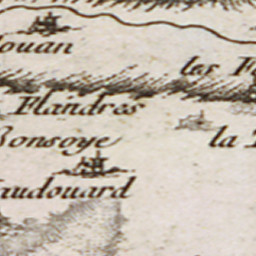 ouan
les F
Flandres
Bonsoye
la
audouard